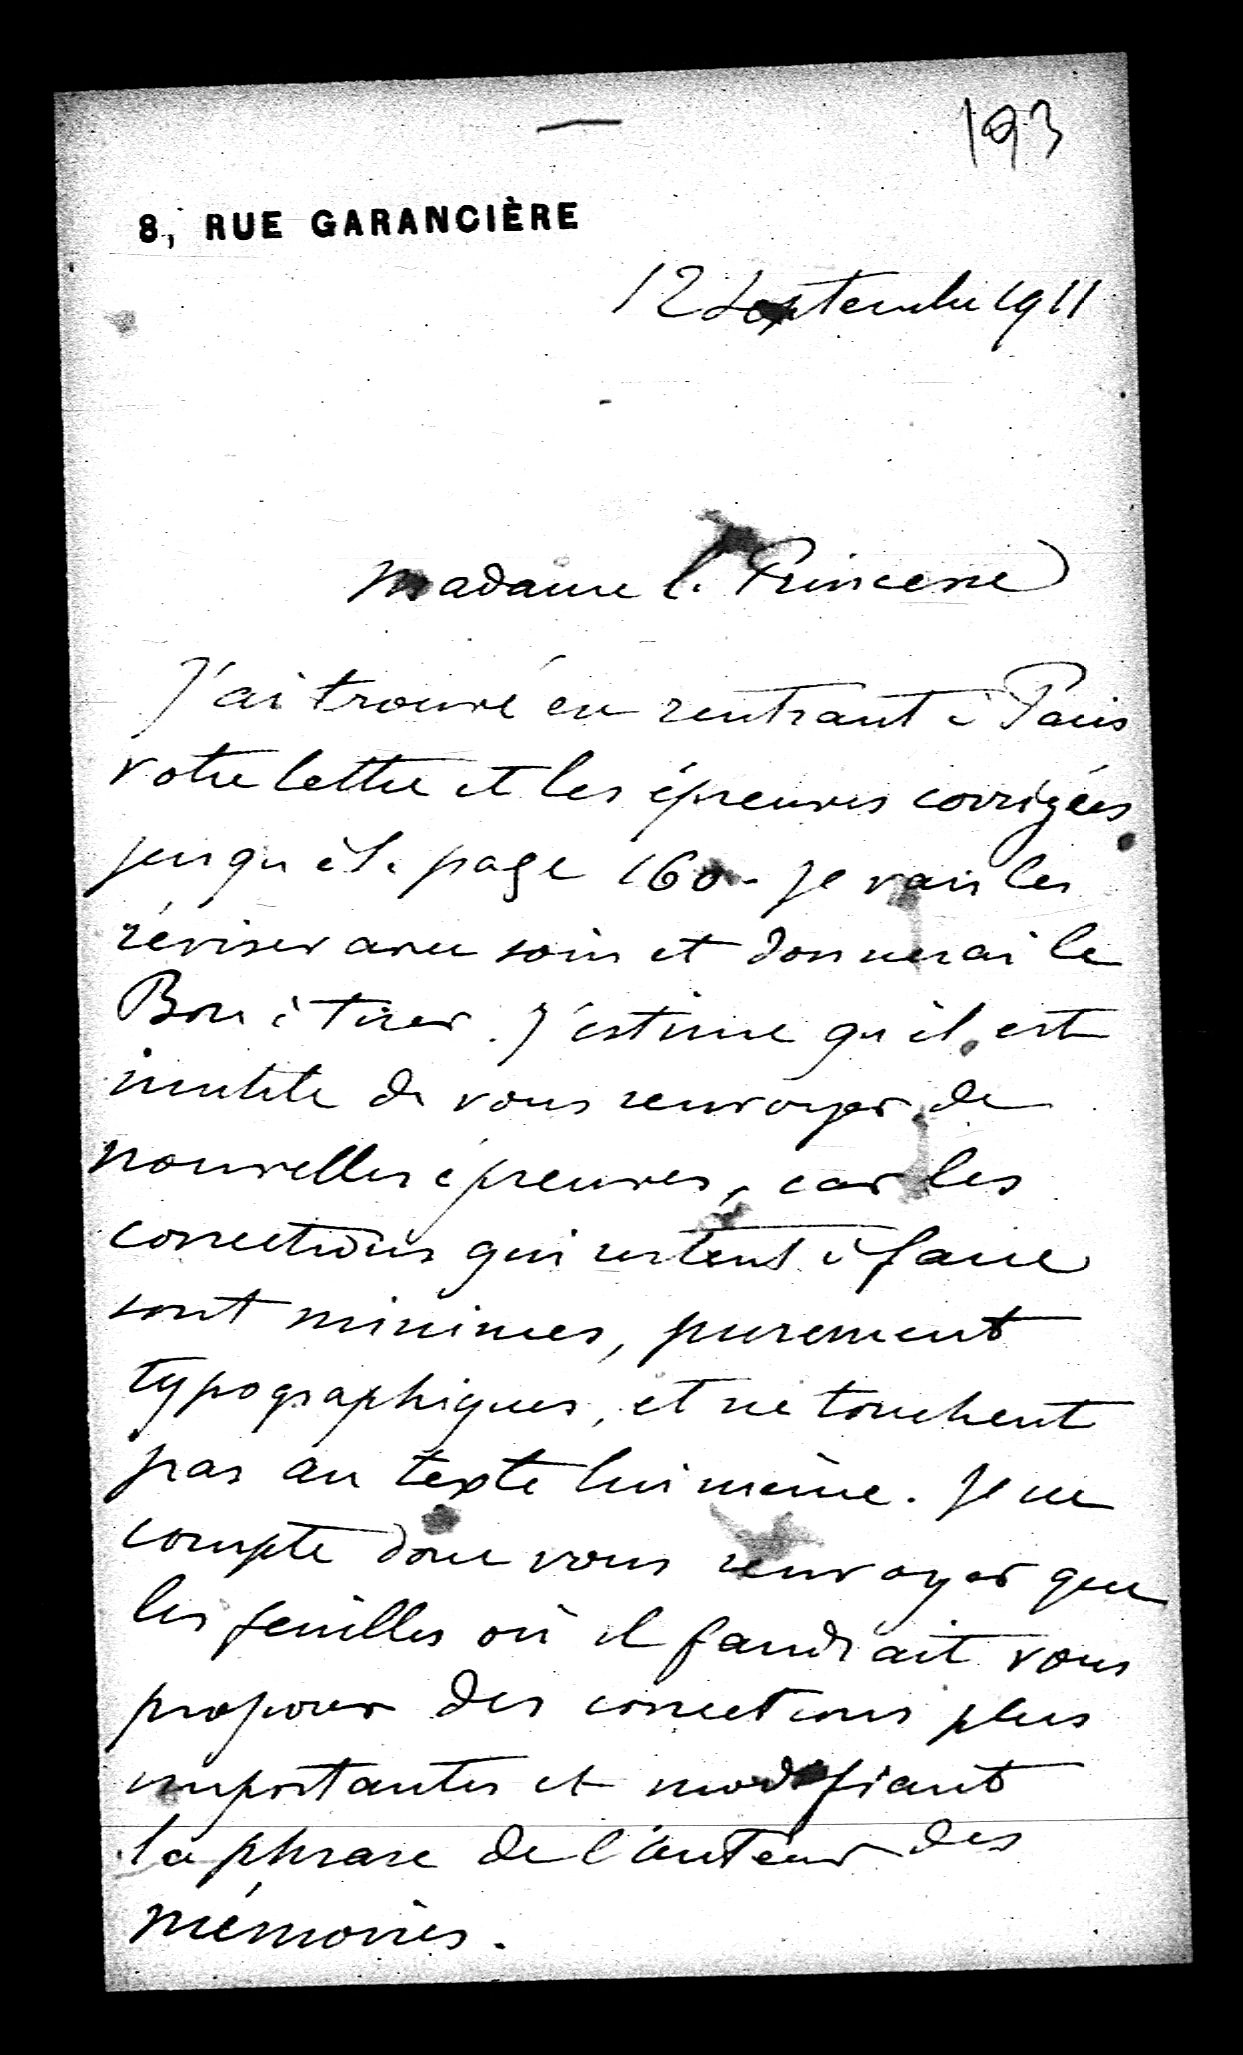 193
8, RUE GARANCIÈRE
12 Septembre 1911
Madame la Princesse
J'ai trouvé en rentrant à Paris
votre lettre et les épreuves corrigées
jusqu'à la page 160. Je vais les
réviser avec soin et donnerai le
Bon à tirer. J'estime qu'il est
inutile de vous renvoyer de
nouvelles épreuves, car les
corrections qui restent à faire
sont minimes, purement
typographiques, et ne touchent
pas au texte lui même. Je ne
compte donc vous renvoyer que
les feuilles où il faudrait vous
proposer des corrections plus
importantes et modifiant
la phrase de l'auteur des
mémoires.